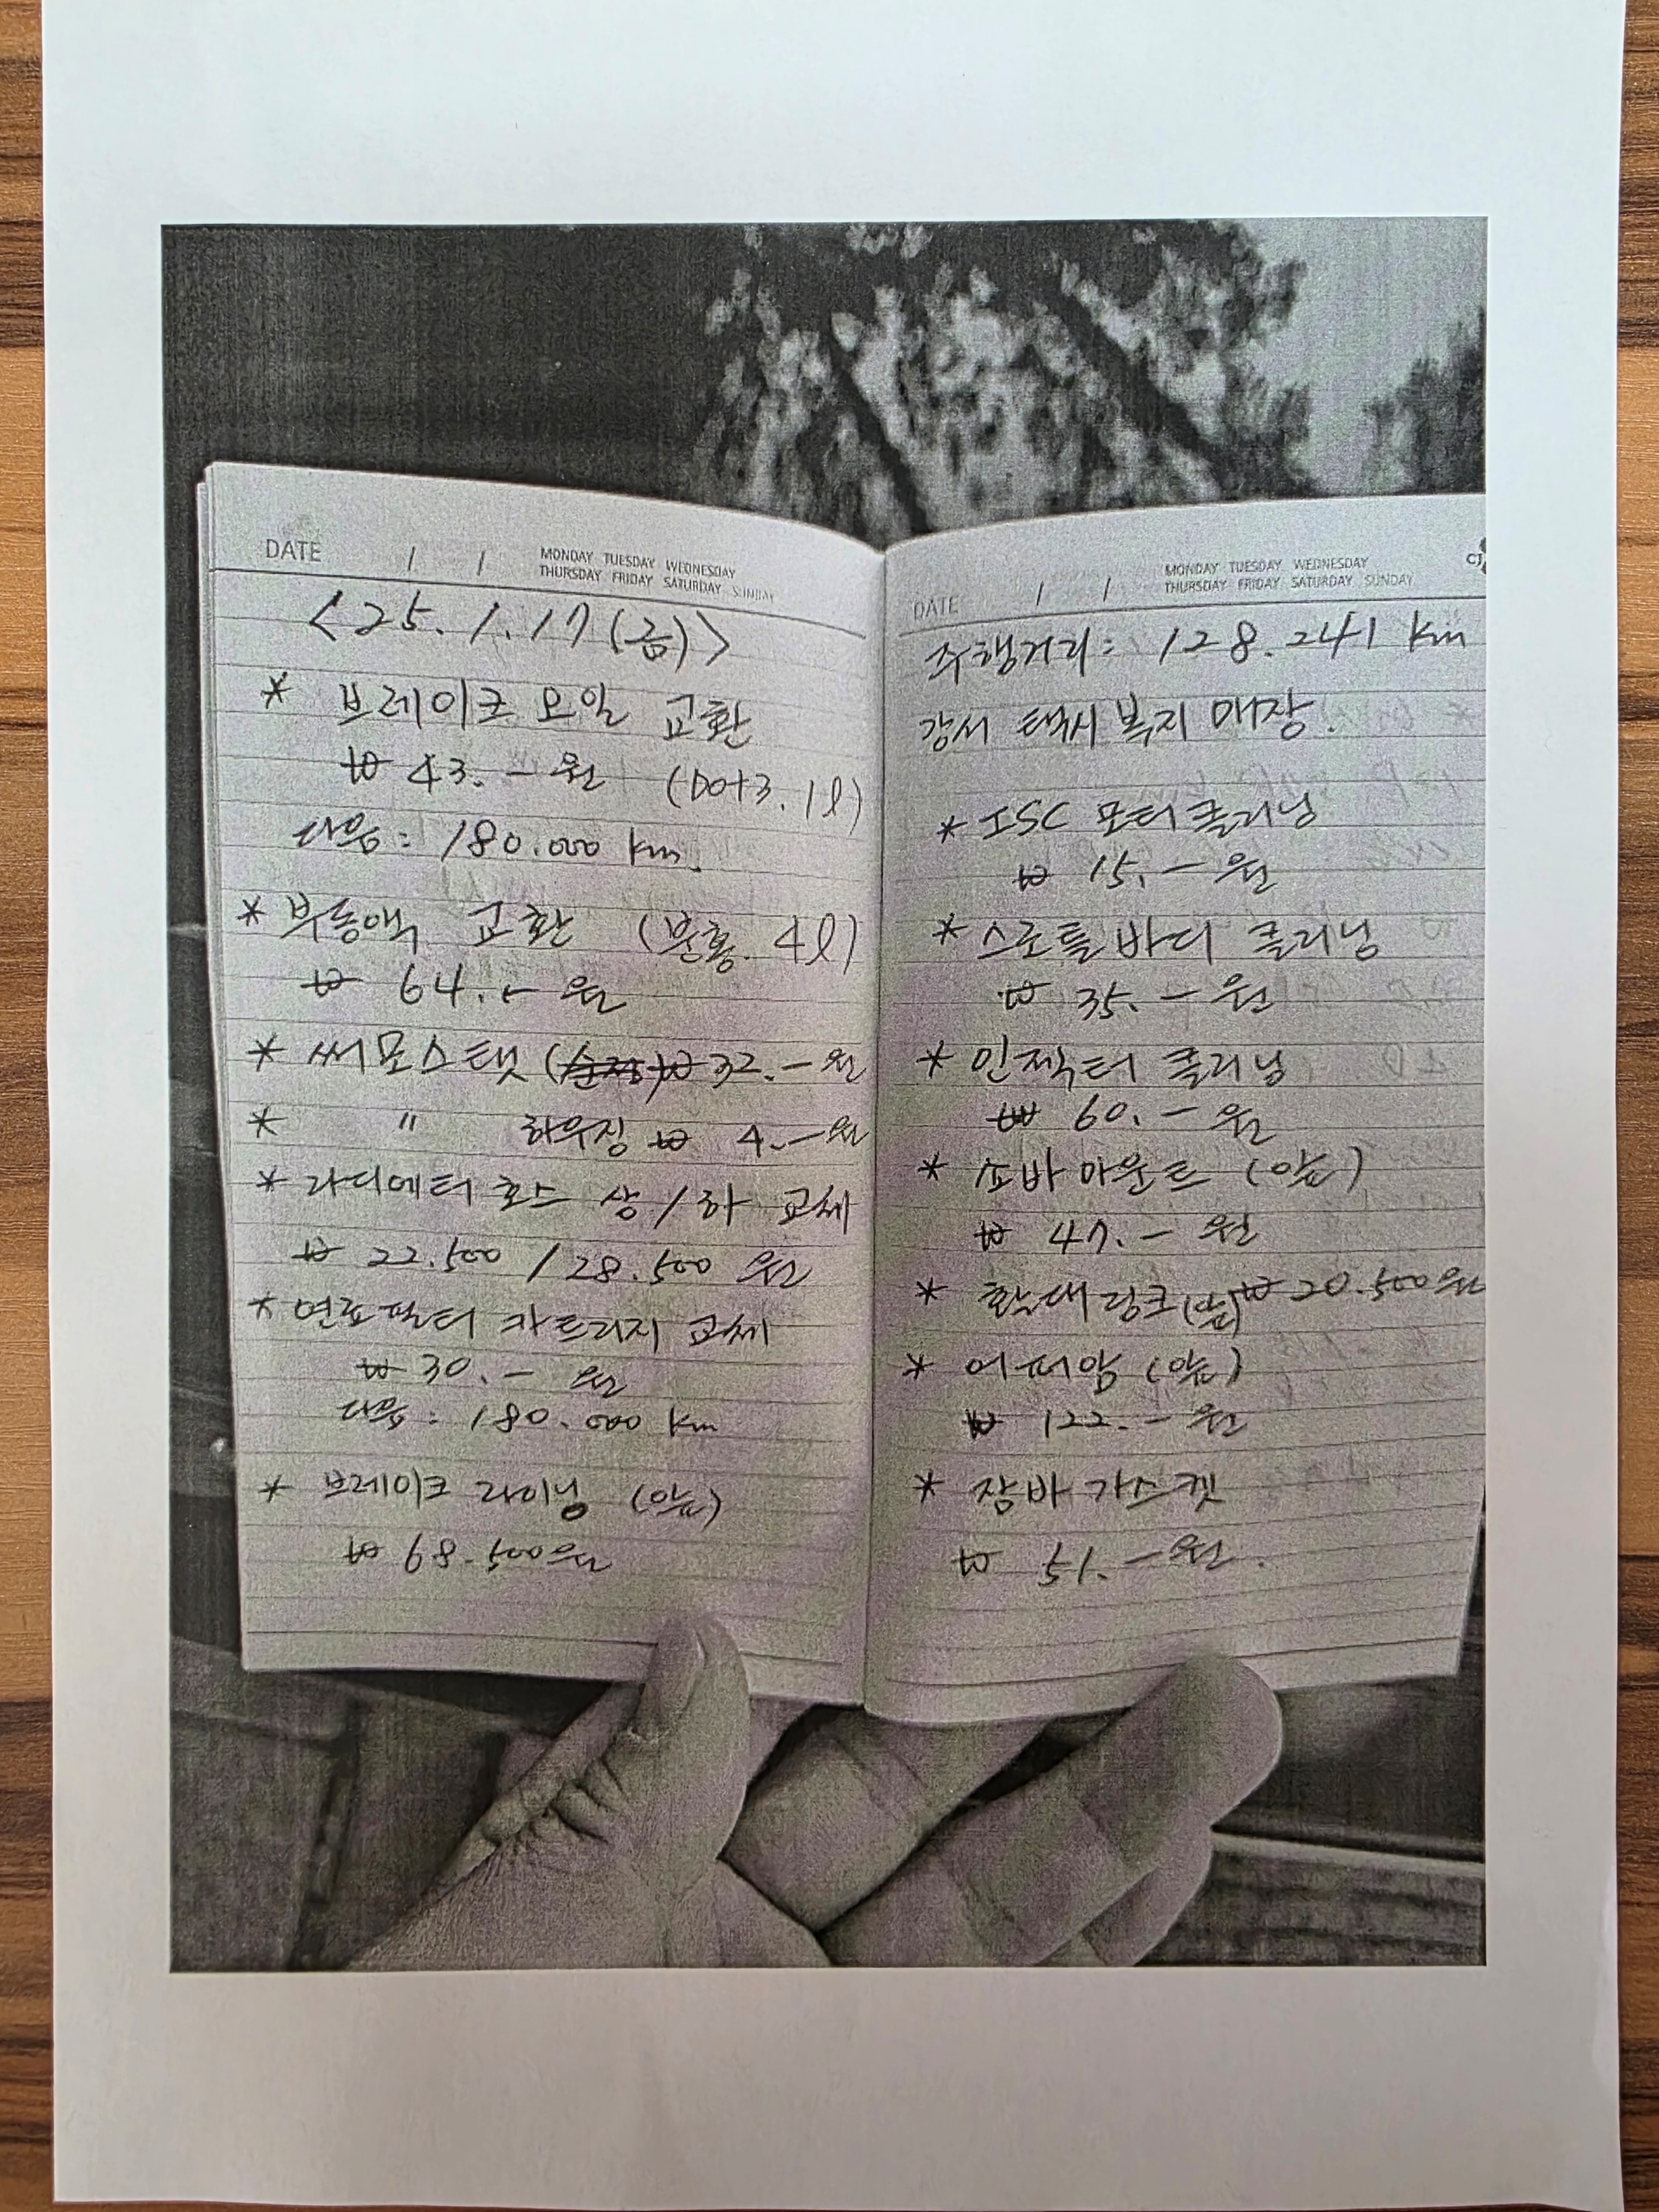 DATE / / MONDAY TUESDAY WEDNESDAY
THURSDAY FRIDAY SATURDAY SUNDAY
<25. 1. 17 (금)>
* 브레이크 오일 교환
₩ 43. - 원 (Dot3. 1ℓ)
다음 : 180.000 km.
* 부동액 교환 (분홍. 4ℓ)
₩ 64. - 원
* 써모스탯 (순정) ₩ 32. - 원
* " 하우징 ₩ 4. - 원
* 라디에터 호스 상 / 하 교체
₩ 22.500 / 28.500 원
* 연료필터 카트리지 교체
₩ 30. - 원
다음 : 180.000 km
* 브레이크 라이닝 (앞)
₩ 68.500원
DATE / / MONDAY TUESDAY WEDNESDAY
THURSDAY FRIDAY SATURDAY SUNDAY
CJ
주행거리 : 128.241 km
강서 택시 복지 매장.
* ISC 모터 클리닝
₩ 15. - 원
* 스로틀바디 클리닝
₩ 35. - 원
* 인젝터 클리닝
₩ 60. - 원
* 쇼바 마운트 (앞)
₩ 47. - 원
* 활대링크(앞) ₩ 20.500원
* 어퍼암 (앞)
₩ 122. - 원
* 잠바 가스켓
₩ 51. - 원.